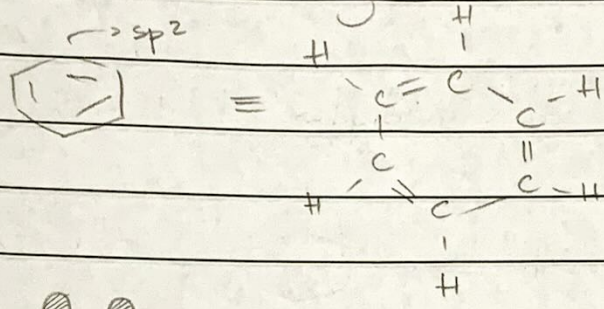 → sp2
H
H
C = C
H
≡
C
C
C
H
H
C
H